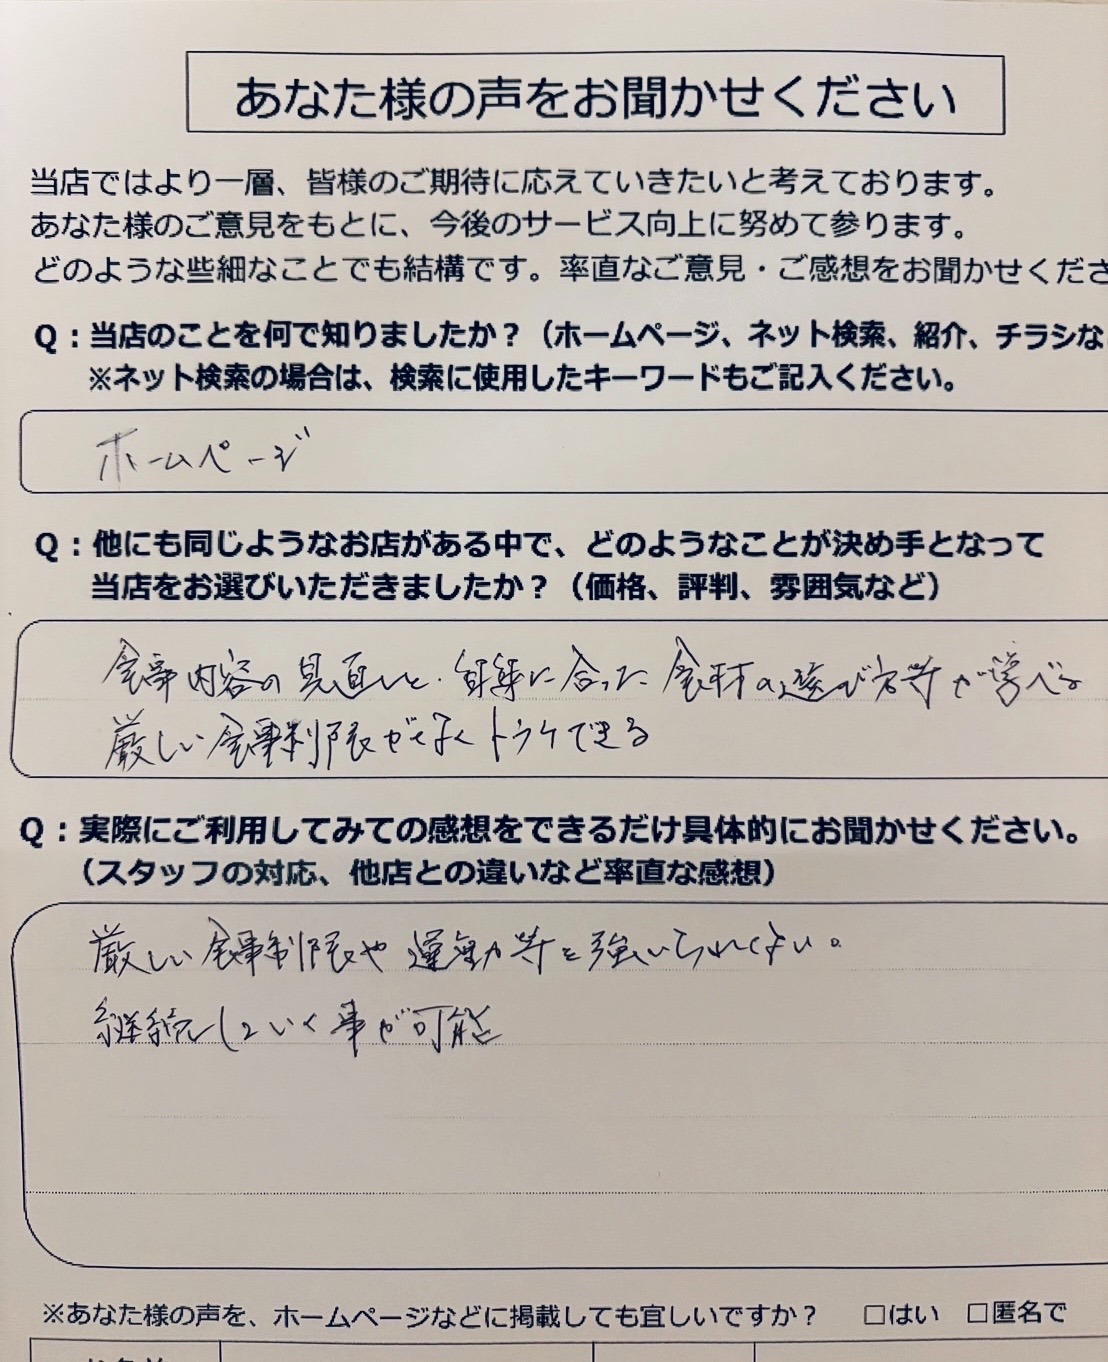 あなた様の声をお聞かせください
当店ではより一層、皆様のご期待に応えていきたいと考えております。
あなた様のご意見をもとに、今後のサービス向上に努めて参ります。
どのような些細なことでも結構です。率直なご意見・ご感想をお聞かせくださ
Q：当店のことを何で知りましたか？（ホームページ、ネット検索、紹介、チラシな
※ネット検索の場合は、検索に使用したキーワードもご記入ください。
ホームページ
Q：他にも同じようなお店がある中で、どのようなことが決め手となって
当店をお選びいただきましたか？（価格、評判、雰囲気など）
食事内容の見直しと・に合った食材の選び方等が学べる
厳しい食事制限がなくトライできる
Q：実際にご利用してみての感想をできるだけ具体的にお聞かせください。
（スタッフの対応、他店との違いなど率直な感想）
厳しい食事制限や運動等を強いられない。
継続していく事が可能
※あなた様の声を、ホームページなどに掲載しても宜しいですか？ □はい □匿名で